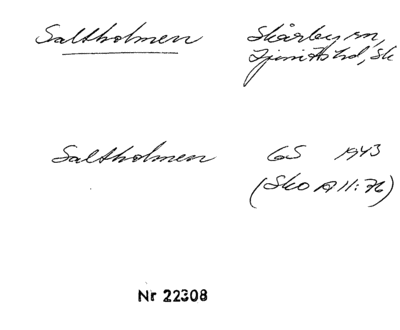 Saltholmen Skårby sn,
Ljunits hd, Sk
Saltholmen GS 1943
(Sko A 11:76)
Nr 22308